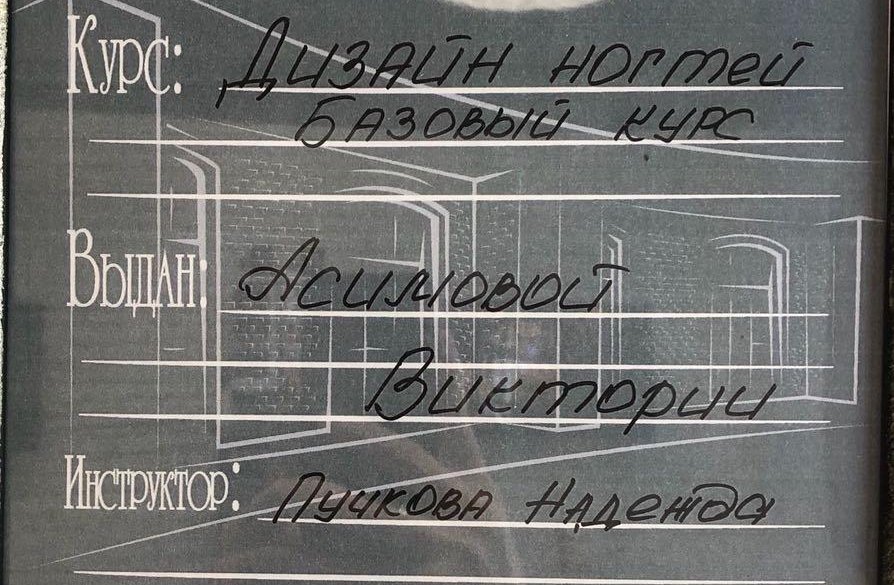 Курс: Дизайн ногтей
Базовый курс
Выдан: Асимовой
Виктории
Инструктор: Пучкова Надежда